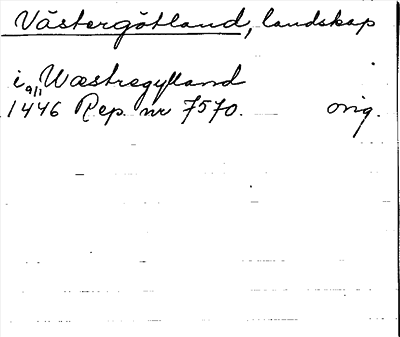 Västergötland, landskap
i Wæstregytland
9/1
1446 Rep. nr 7570. orig.